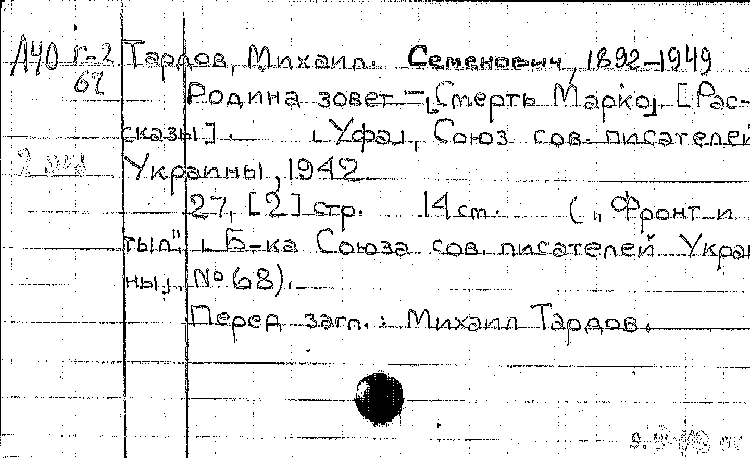 Л40 г-2 Тардов, Михаил. Семенович, 1892–1949
62
Родина зовет – ⌊Смерть Марко⌋ [Рас-
сказы]. ⌊Уфа⌋, Союз сов. писателей
2 экз Украины, 1942
27, [2] стр. 14 см. („Фронт и
тыл". ⌊Б-ка Союза сов. писателей Украи
ны⌋, № 68).
Перед загл.: Михаил Тардов.